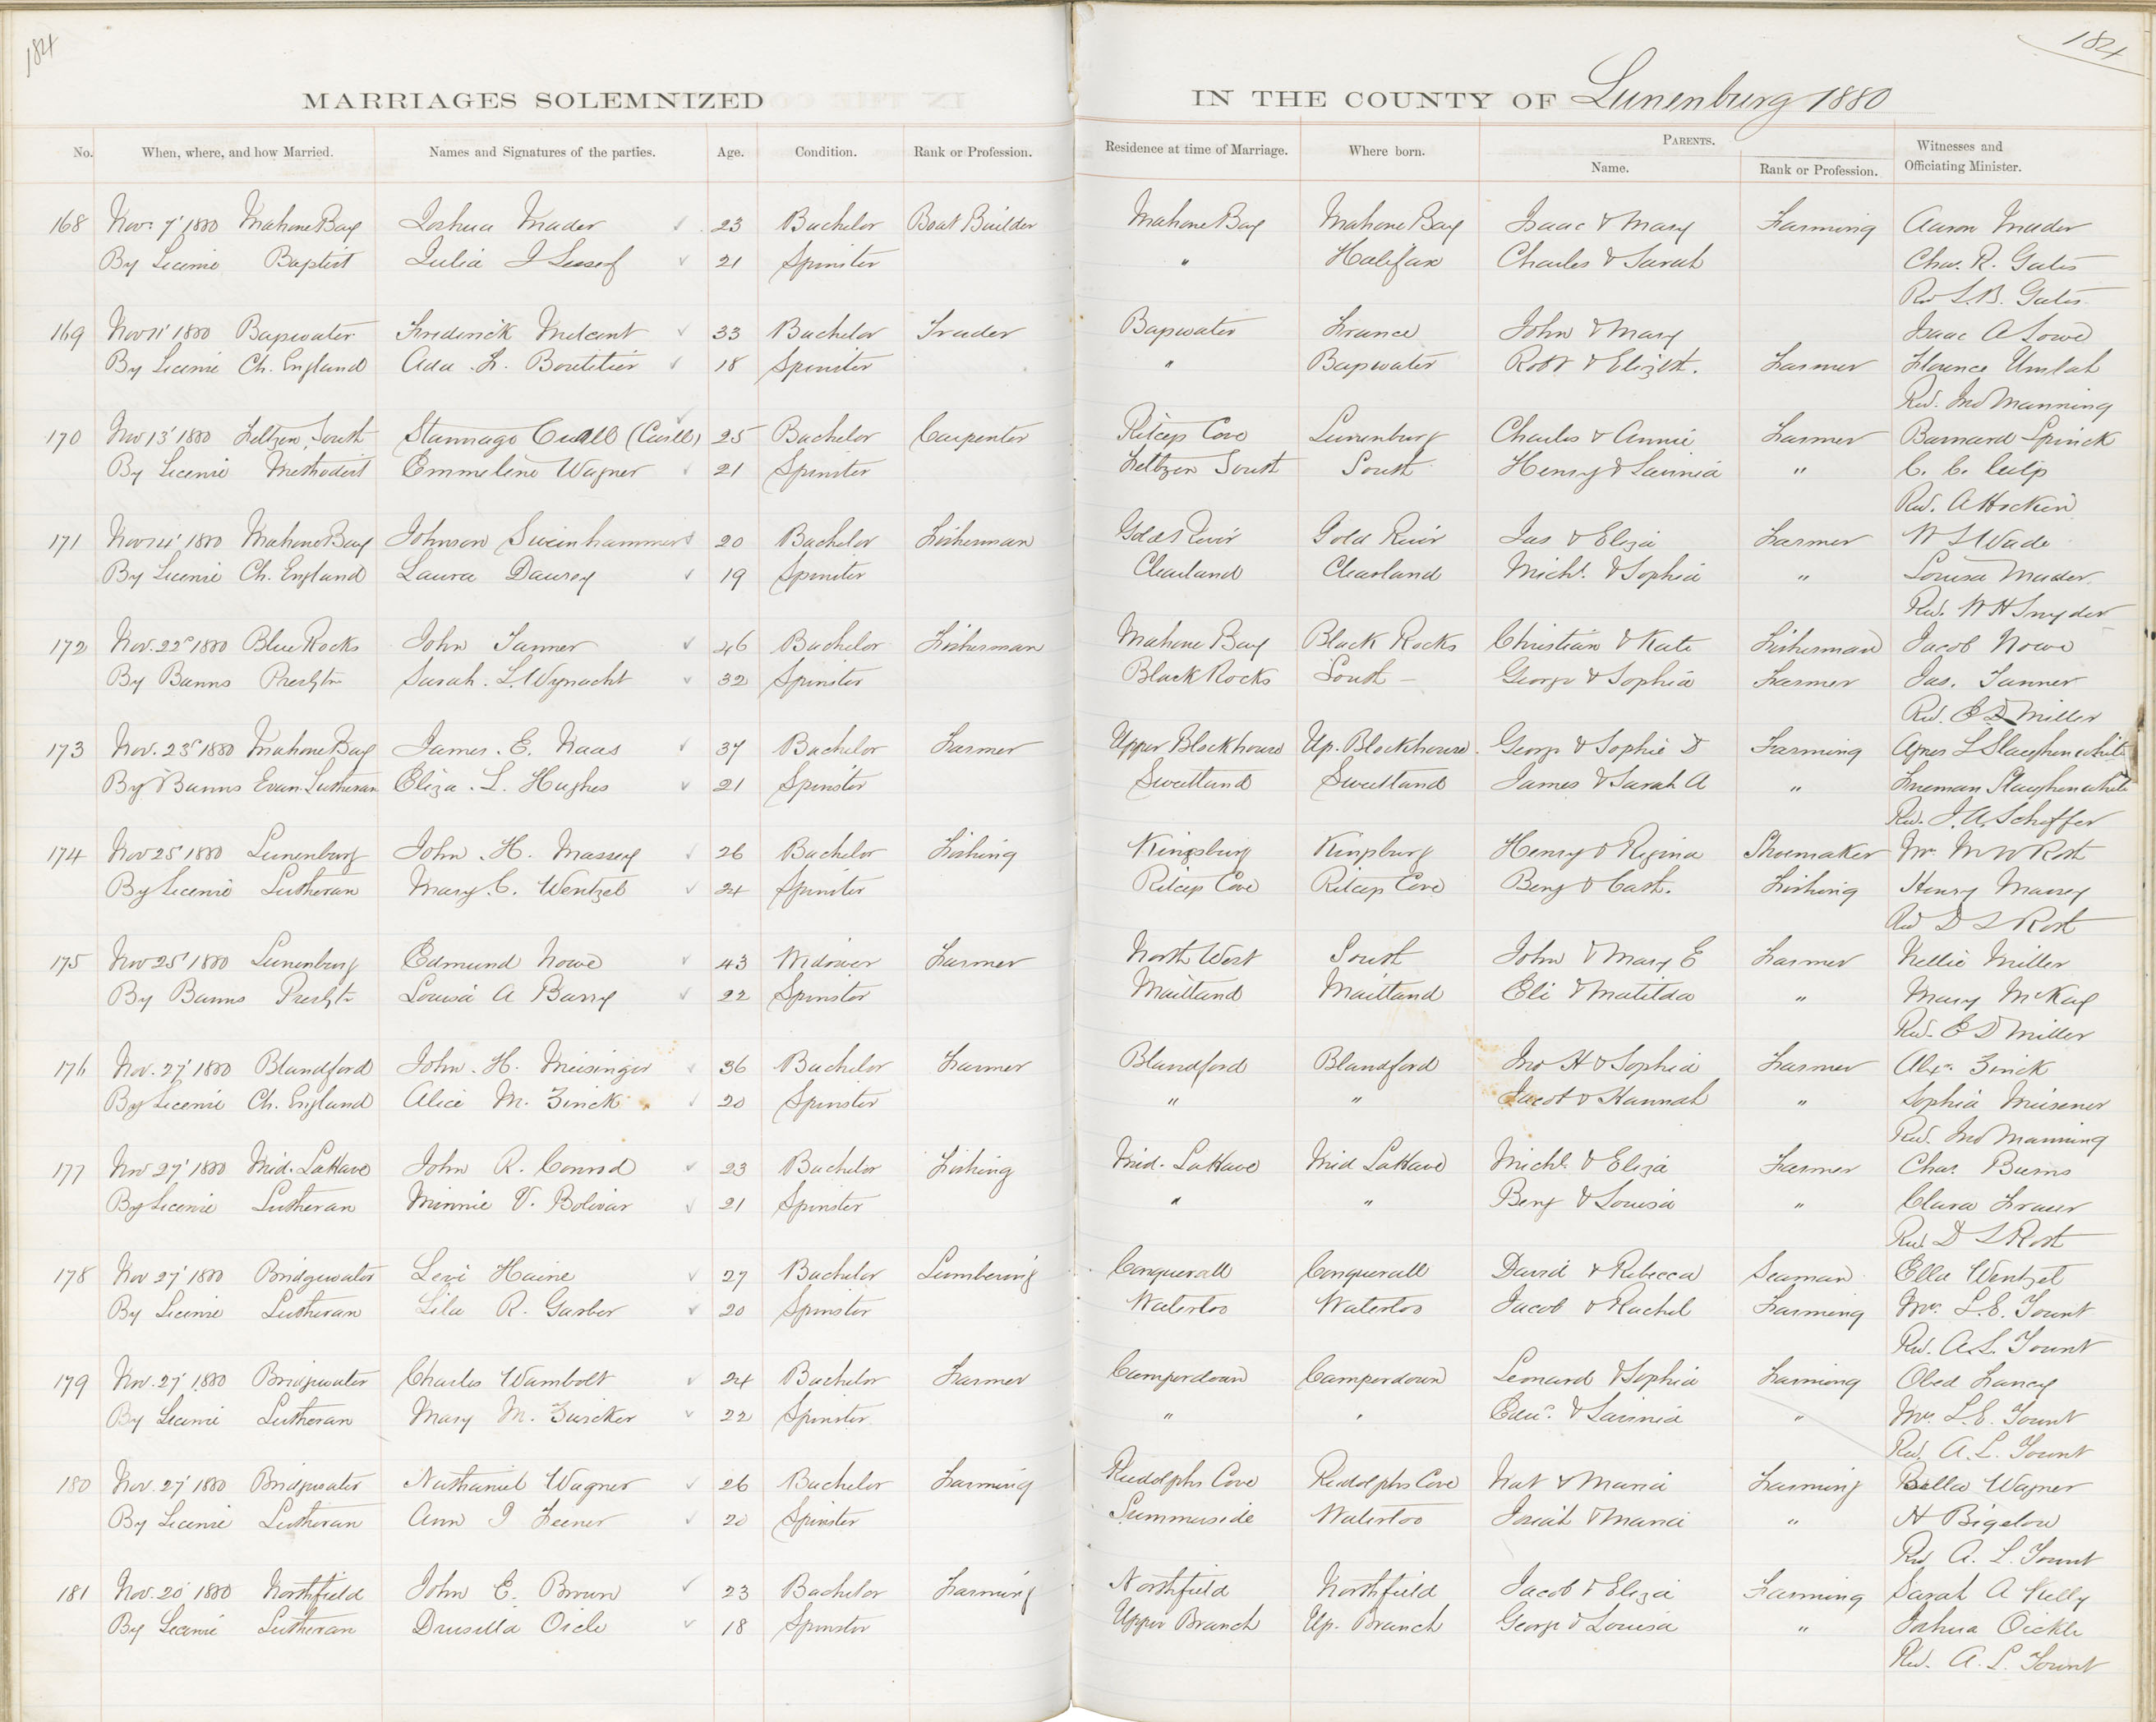 184
184
MARRIAGES SOLEMNIZED IN THE COUNTY OF Lunenburg 1880
No. When, where, and how Married. Names and Signatures of the parties. Age. Condition. Rank or Profession. Residence at time of Marriage. Where born. PARENTS. Name. Rank or Profession. Witnesses and Officiating Minister.
168 Nov. 7' 1880 Mahone Bay Joshua Mader 23 Bachelor Boat Builder Mahone Bay Mahone Bay Isaac & Mary Farming Aaron Mader
By License Baptist Julia J 21 Spinster " Halifax Charles & Sarah Chas. R. Gates
Rev S.B. Gates
169 Nov 11' 1880 Bayswater Frederick 33 Bachelor Trader Bayswater France John & Mary Isaac A Lowe
By License Ch. England Ada L. Boutilier 18 Spinster " Bayswater Robt & Elizbt. Farmer Florence Umlah
Rev. Jno Manning
170 Nov 13' 1880 Feltzen South Stannage (Corkum) 25 Bachelor Carpenter Ritceys Cove Lunenburg Charles & Annie Farmer Barnard Spinck
By License Methodist Emmeline Wagner 21 Spinster Feltzen South South Henry & Lavinia " C. C. Culp
Rev. A Hockin
171 Nov 14' 1880 Mahone Bay Johnson Sweinhammer 20 Bachelor Fisherman Gold River Gold River Jas & Eliza Farmer W S Wade
By License Ch. England Laura Daurey 19 Spinster Clearland Clearland Michl. & Sophia " Louisa Mader
Rev. W H Snyder
172 Nov. 22d 1880 Blue Rocks John Tanner 46 Bachelor Fisherman Mahone Bay Black Rocks Christian & Kate Fisherman Jacob Nowe
By Banns Presbytn Sarah L. Wynacht 32 Spinster Black Rocks South – George & Sophia Farmer Jas. Tanner
Rev. E D Miller
173 Nov. 23d 1880 Mahone Bay James. E. Naas 37 Bachelor Farmer Upper Blockhouse Up. Blockhouse George & Sophie D Farming Agnes L Slaughenwhite
By Banns Evan. Lutheran Eliza. L. Hughes 21 Spinster Sweetland Sweetland James & Sarah A " Freeman Slaughenwhite
Rev. J. A. Scheffer
174 Nov 25' 1880 Lunenburg John. H. Massey 26 Bachelor Fishing Kingsburg Kingsburg Henry & Regina Shoemaker Mr. M W Rost
By License Lutheran Mary C. Wentzel 24 Spinster Ritceys Cove Ritceys Cove Benj & Cath. Fishing Henry Massey
Rev D L Rost
175 Nov 25' 1880 Lunenburg Edmund Nowe 43 Widower Farmer North West South John & Mary E Farmer Nellie Miller
By Banns Presbytn Louisa A Barry 22 Spinster Maitland Maitland Eli & Matilda " Mary McKay
Rev. E D Miller
176 Nov. 27' 1880 Blandford John. H. Meisinger 36 Bachelor Farmer Blandford Blandford Jno H & Sophia Farmer Alex. Zinck
By License Ch. England Alice M. Zinck 20 Spinster " " Jacob & Hannah " Sophia Meisener
Rev. Jno Manning
177 Nov 27' 1880 Mid. LaHave John R. Conrod 23 Bachelor Fishing Mid. LaHave Mid LaHave Michl. & Eliza Farmer Chas. Burns
By License Lutheran Minnie V. Bolivar 21 Spinster " " Benj & Louisa " Clara
Rev. D L Rost
178 Nov 27' 1880 Bridgewater Levi Haine 27 Bachelor Lumbering Conquerall Conquerall David & Rebecca Seaman Ella Wentzel
By License Lutheran Lila R. Garber 20 Spinster Waterloo Waterloo Jacob & Rachel Farming Mrs. L. E. Yount
Rev. A. L. Yount
179 Nov. 27' 1880 Bridgewater Charles Wambolt 24 Bachelor Farmer Camperdown Camperdown Leonard & Sophia Farming Obed Fancy
By License Lutheran Mary M. Zwicker 22 Spinster " " Edwd. & Lavinia " Mrs. L. E. Yount
Rev. A. L. Yount
180 Nov. 27' 1880 Bridgewater Nathaniel Wagner 26 Bachelor Farming Rudolphs Cove Rudolphs Cove Nat & Maria Farming Bella Wagner
By License Lutheran Ann J Feener 20 Spinster Summerside Waterloo Josiah & Maria " H Bigelow
Rev. A. L. Yount
181 Nov. 20' 1880 Northfield John E. Brown 23 Bachelor Farming Northfield Northfield Jacob & Eliza Farming Sarah A Kelly
By License Lutheran Drusilla Oicle 18 Spinster Upper Branch Up. Branch George & Louisa " Joshua Oickle
Rev. A. L. Yount